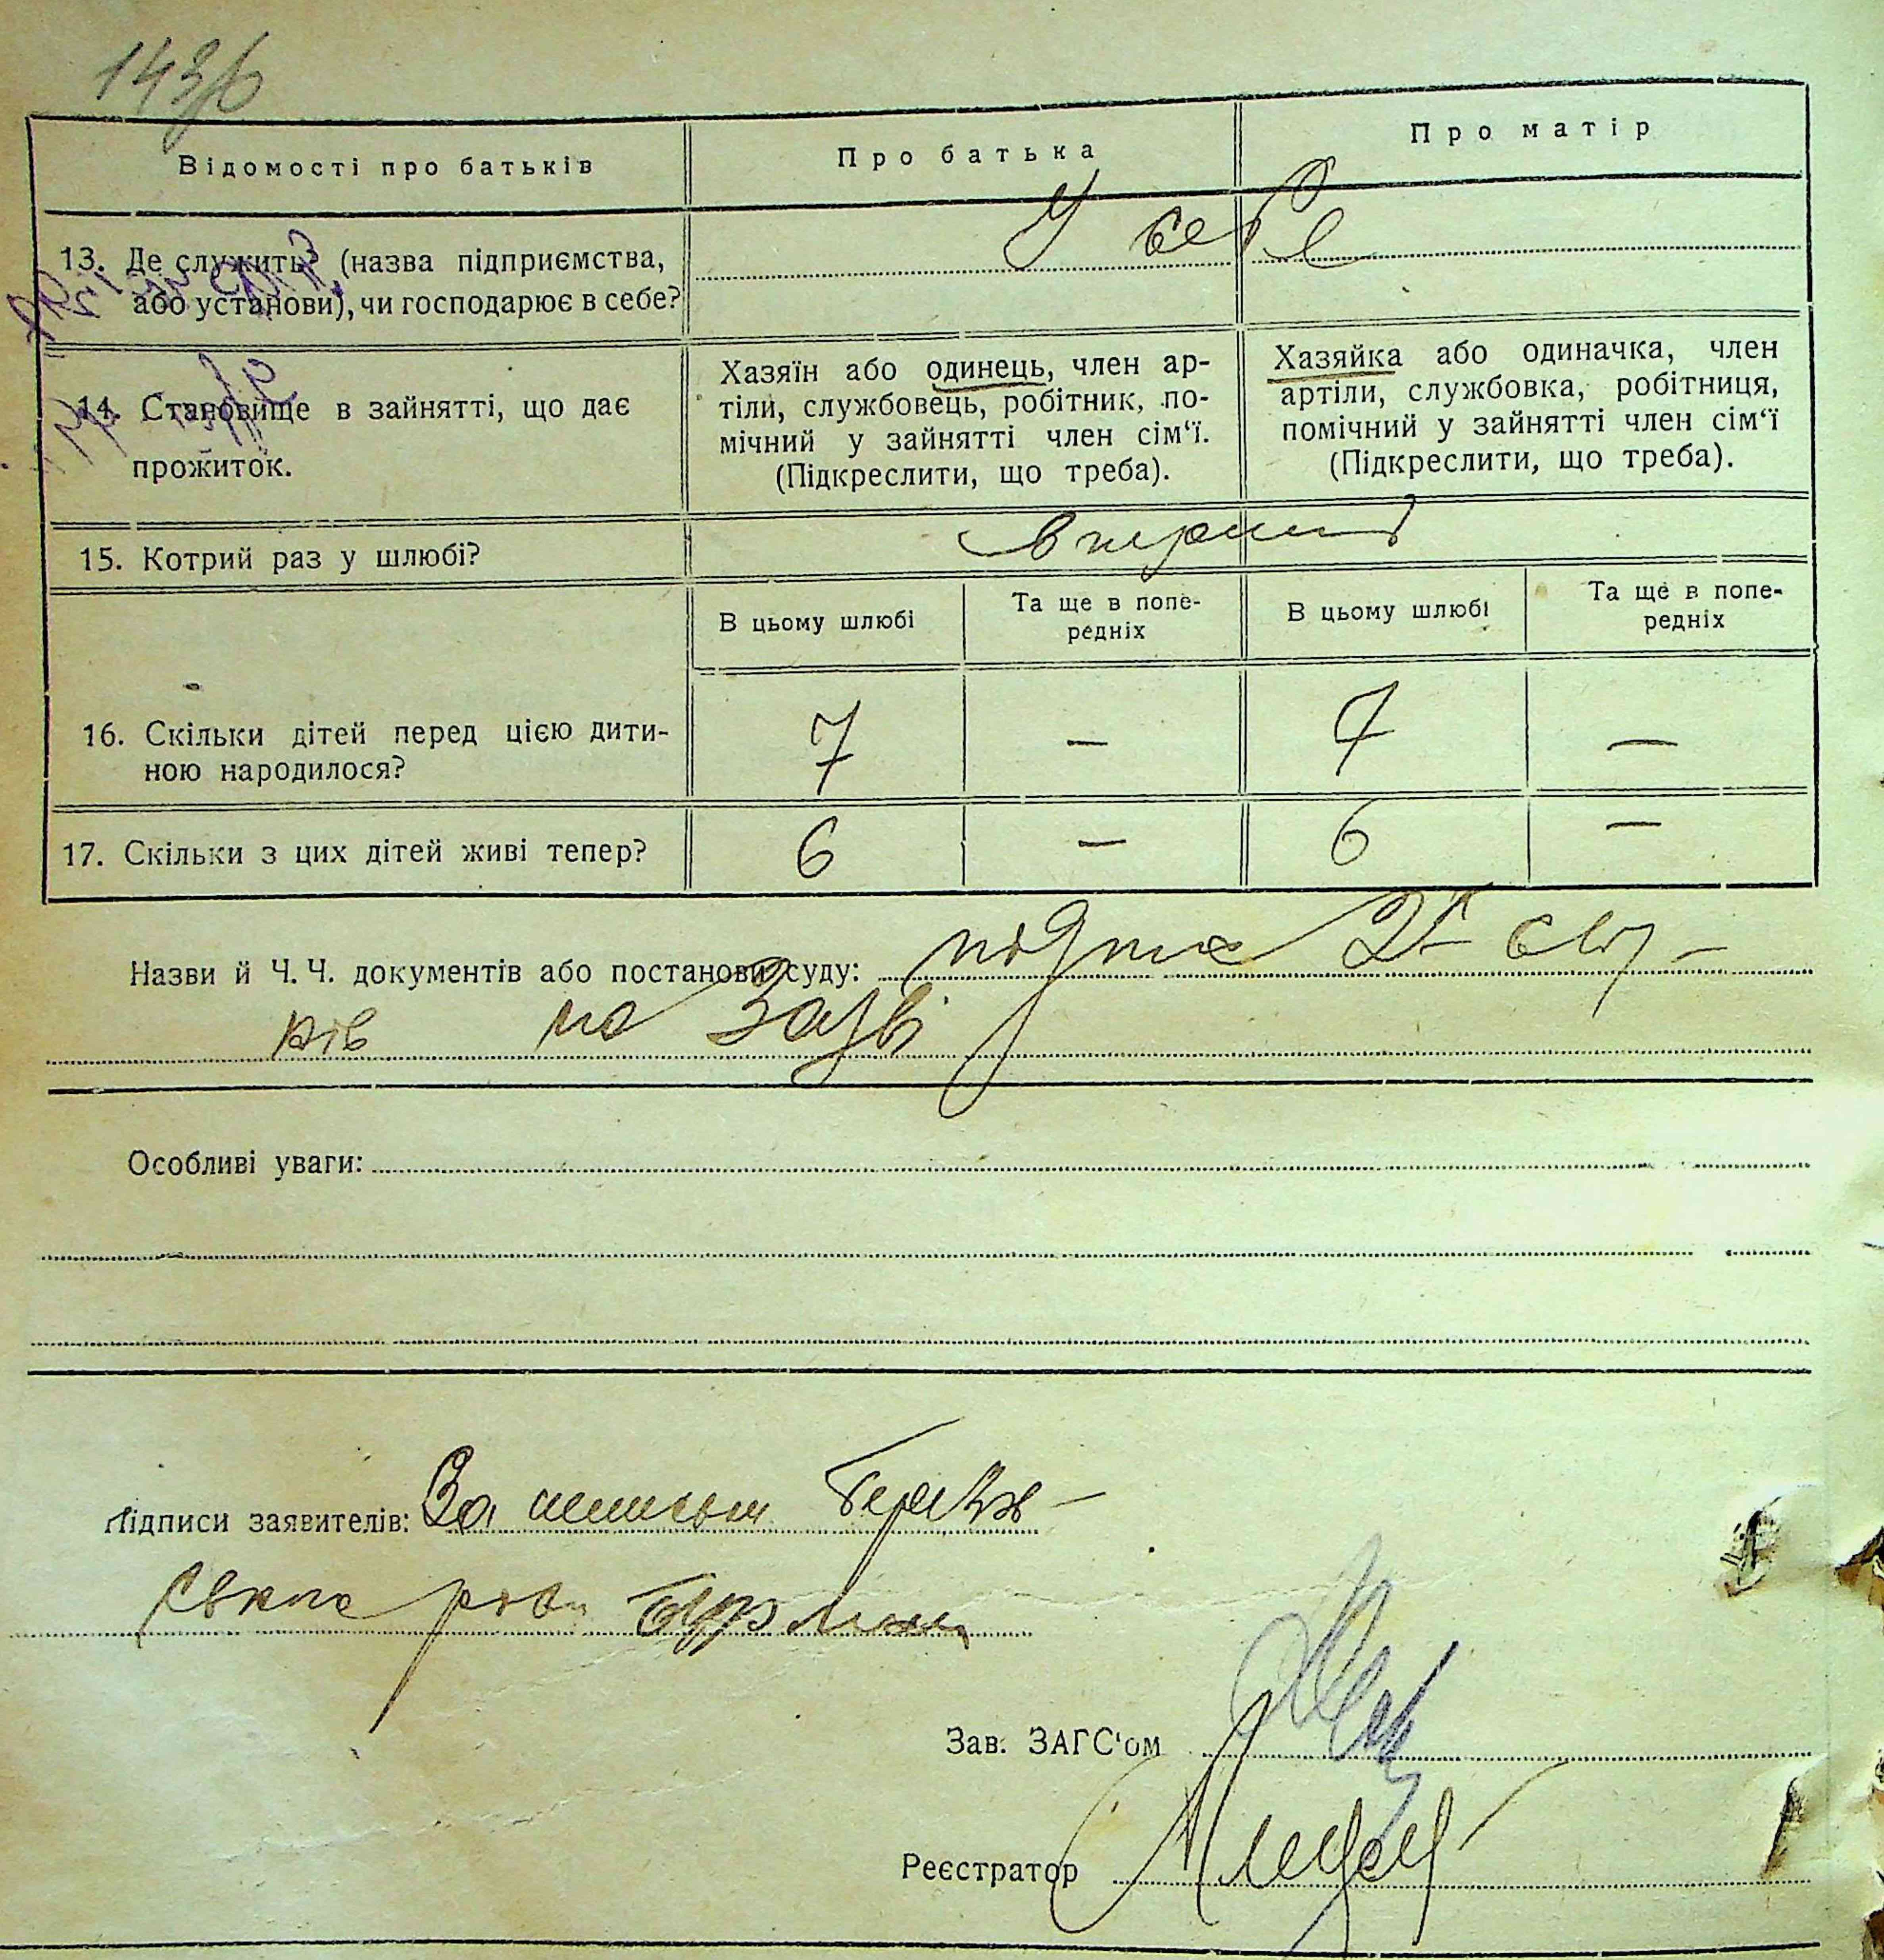 143/б
Відомості про батьків
Про батька
Про матір
13. Де служить? (назва підприємства,
або установи), чи господарює в себе?
У себе
14. Становище в зайнятті, що дає
прожиток.
Хазяїн або одинець, член ар-
тіли, службовець, робітник, по-
мічний у зайнятті член сім‘ї.
(Підкреслити, що треба).
Хазяйка або одиначка, член
артіли, службовка, робітниця,
помічний у зайнятті член сім‘ї
(Підкреслити, що треба).
15. Котрий раз у шлюбі?
В цьому шлюбі
Та ще в попе-
редніх
В цьому шлюбі
Та ще в попе-
редніх
16. Скільки дітей перед цією дити-
ною народилося?
7 — 7 —
17. Скільки з цих дітей живі тепер?
6 — 6 —
Назви й Ч.Ч. документів або постанови суду: підпис 2х свід-
ків на
Особливі уваги:
Підписи заявителів: За
Зав. ЗАГС‘ом
Реєстратор